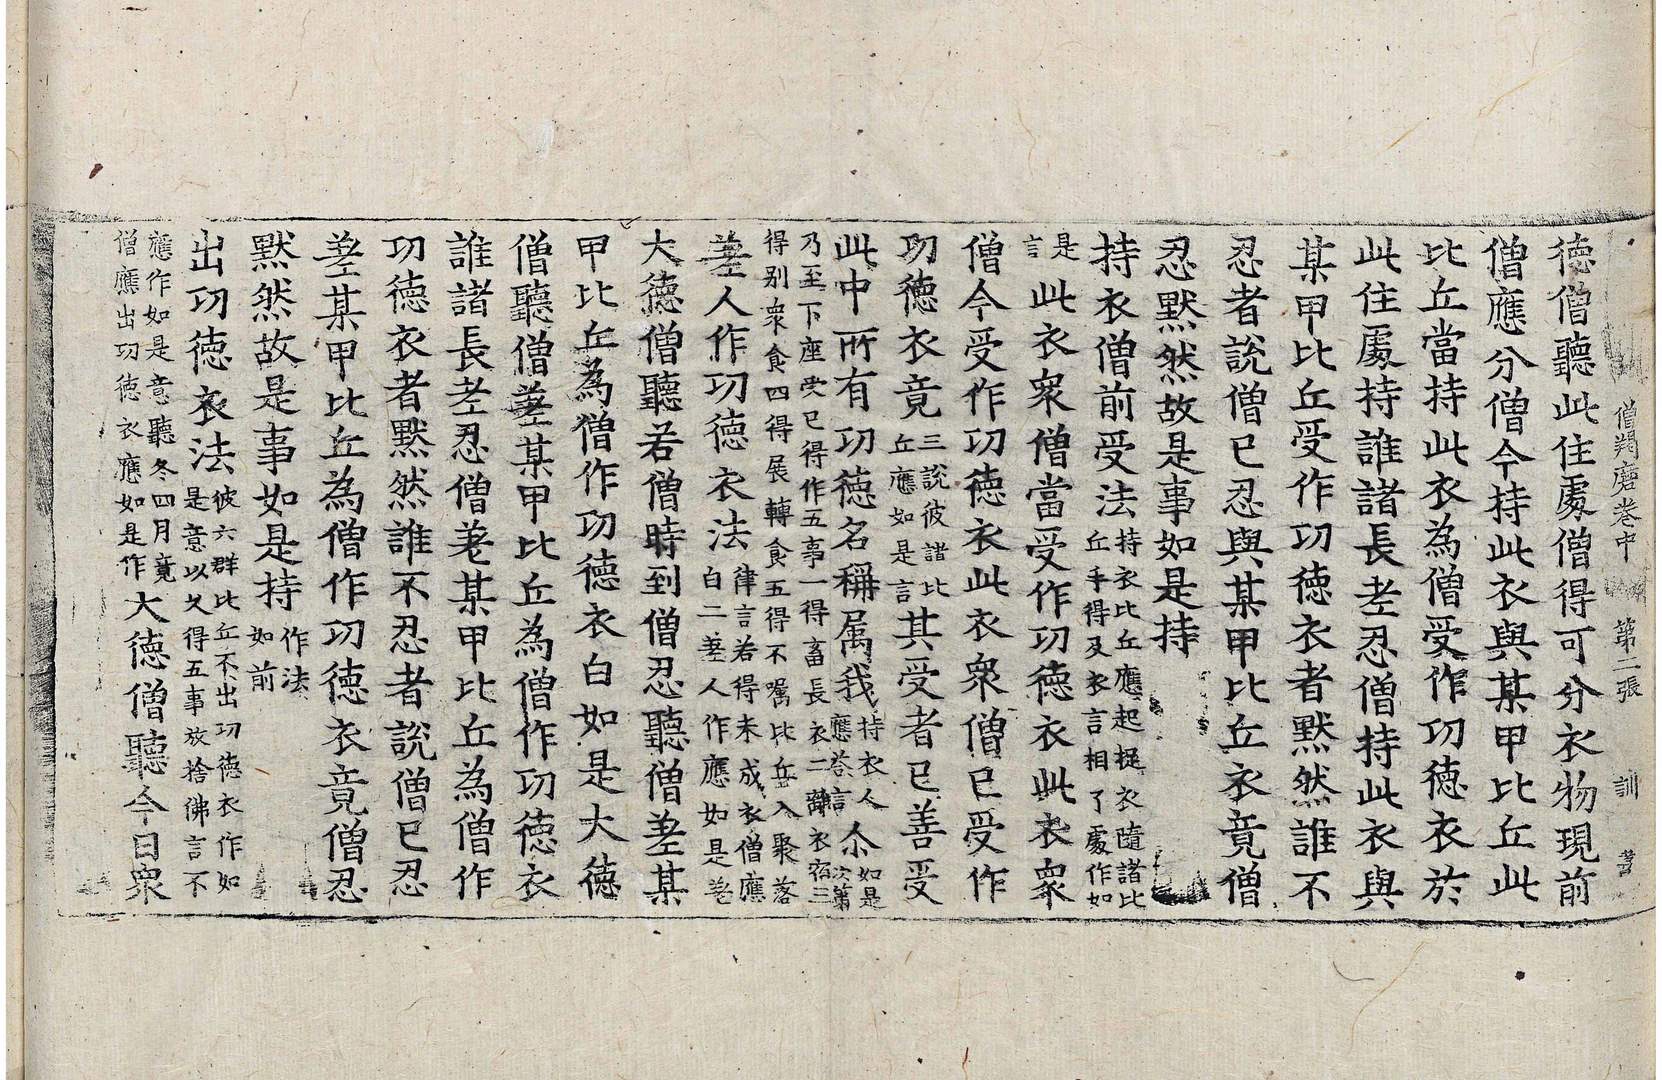 僧羯磨卷中 第二張 訓
德僧聽此住處僧得可分衣物現前
僧應分僧今持此衣與某甲比丘此
比丘當持此衣為僧受作功德衣於
此住處持誰諸長老忍僧持此衣與
某甲比丘受作功德衣者默然誰不
忍者說僧已忍與某甲比丘衣竟僧
忍默然故是事如是持
持衣僧前受法持衣比丘應起捉衣隨諸比丘手得及衣言相了處作如
是言此衣衆僧當受作功德衣此衣衆
僧今受作功德衣此衣衆僧已受作
功德衣竟三說彼諸比丘應如是言其受者已善受
此中所有功德名稱属我持衣人應荅言尒如是次第
乃至下座受已得作五事一得畜長衣二離衣宿三得别衆食四得展轉食五得不囑比丘入聚落
差人作功德衣法律言若得未成衣僧應白二差人作應如是差
大德僧聽若僧時到僧忍聽僧差某
甲比丘為僧作功德衣白如是大德
僧聽僧差某甲比丘為僧作功德衣
誰諸長老忍僧差某甲比丘為僧作
功德衣者默然誰不忍者說僧已忍
差某甲比丘為僧作功德衣竟僧忍
默然故是事如是持作法如前
出功德衣法彼六群比丘不出功德衣作如是意以久得五事放捨佛言不
應作如是意聽冬四月竟僧應出功德衣應如是作大德僧聽今日衆